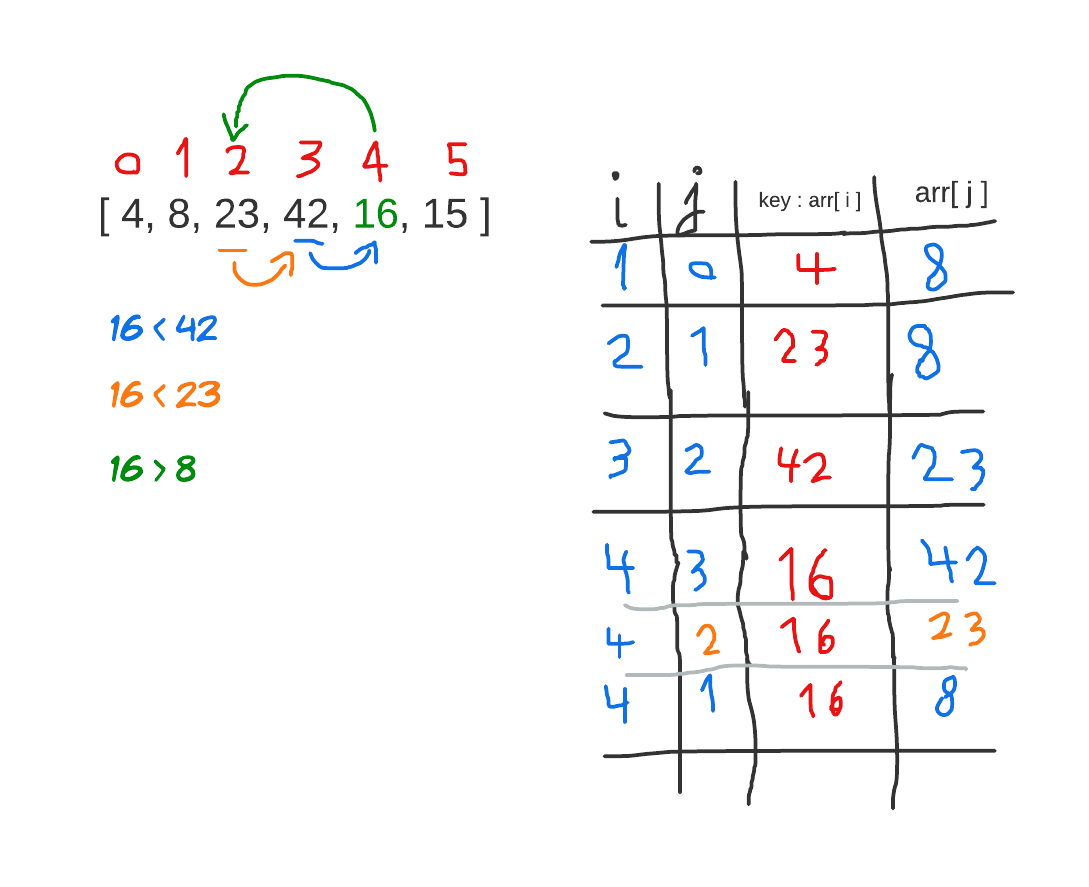 0 1 2 3 4 5
[ 4, 8, 23, 42, 16, 15 ]
16 < 42
16 < 23
16 > 8
i j key : arr[ i ] arr[ j ]
1 0 4 8
2 1 23 8
3 2 42 23
4 3 16 42
4 2 16 23
4 1 16 8